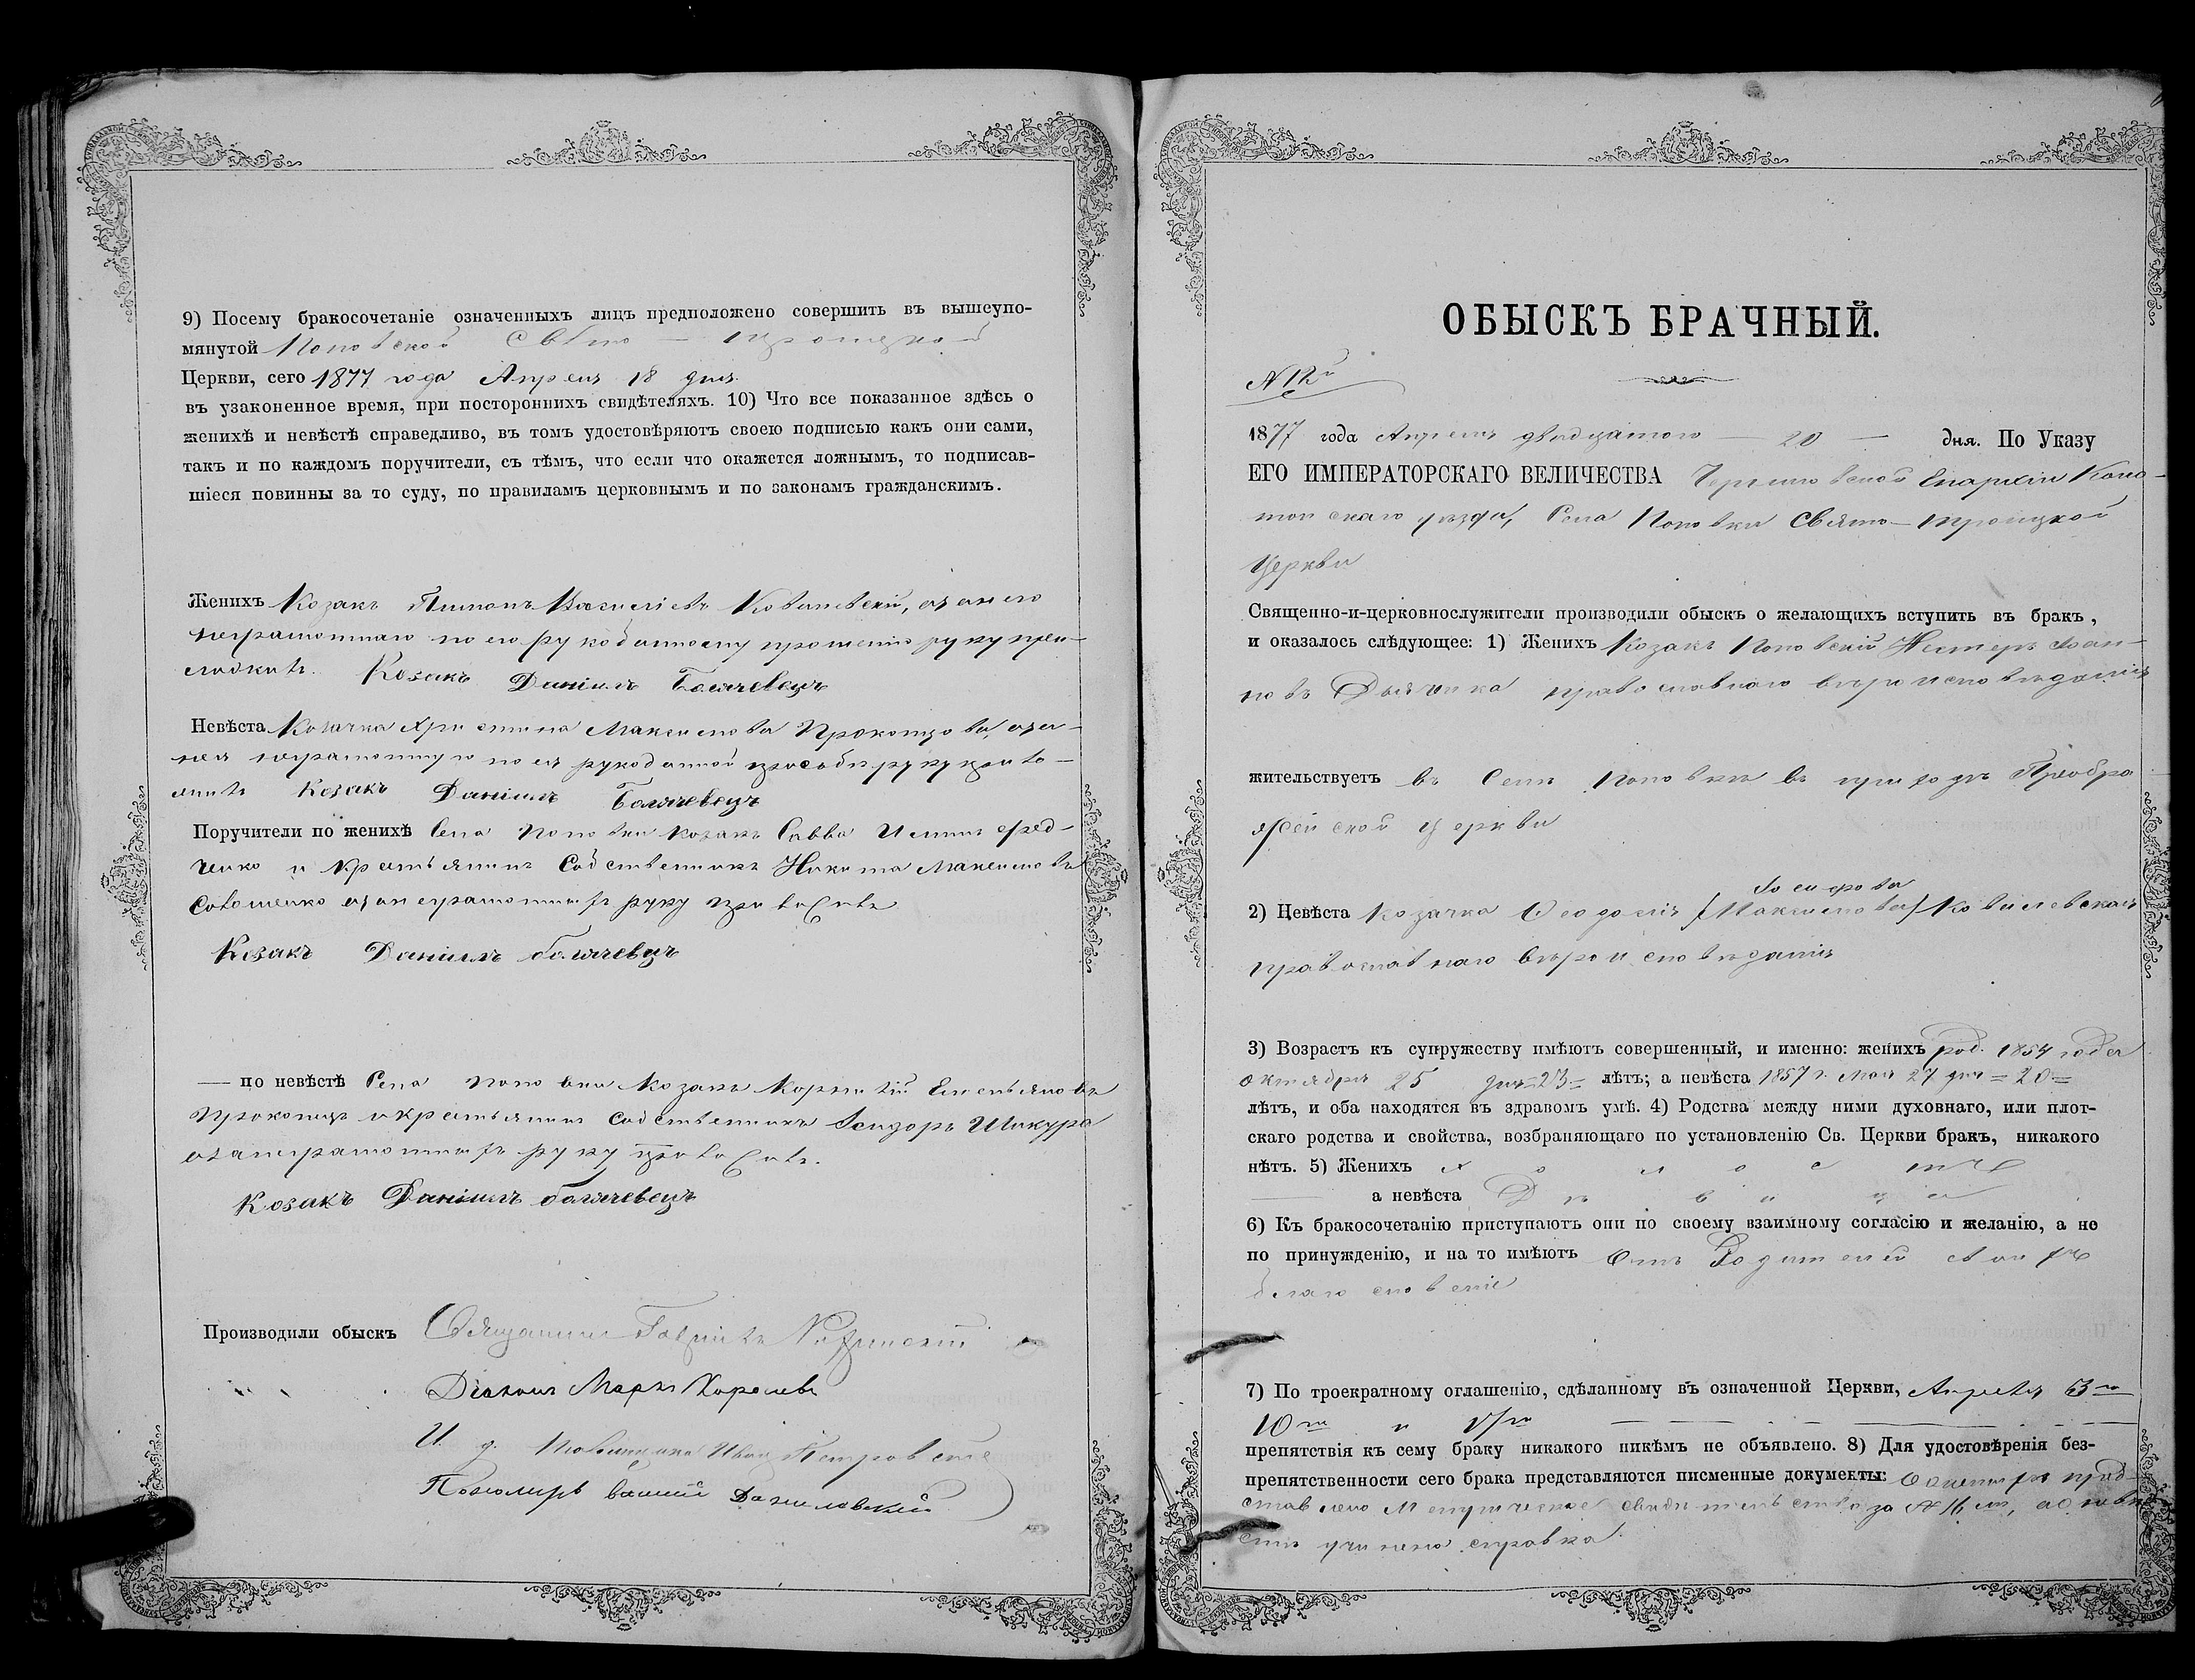 9) Посему бракосочетаніе означенныхъ лицъ предположено совершить въ вышеупо-
мянутой Поповской Свято — Троицкой
Церкви, сего 1877 года Апреля 18 дня.
въ узаконенное время, при постороннихъ свидѣтеляхъ. 10) Что все показанное здѣсь о
женихѣ и невѣстѣ справедливо, въ томъ удостовѣряютъ своею подписью какъ они сами,
такъ и по каждомъ поручители, съ тѣмъ, что если что окажется ложнымъ, то подписав-
шіеся повинны за то суду, по правиламъ церковнымъ и по законамъ гражданскимъ.
Женихъ Козакъ Василіевъ Ковалевскій, а за него
неграмотнаго по его рукоданному прошенію руку при-
Козакъ Даніилъ
Невѣста Козачка Христина Максимова Прокопцова, а за
нея неграмотную по ея рукоданной прозбѣ руку прило-
жилъ Козакъ Даніилъ
Поручители по женихѣ Села Поповки козакъ Савва
и Крестьянинъ Собственникъ Никита Максимовъ
а за неграмотныхъ руку приложилъ
Козакъ Даніилъ
— по невѣстѣ Села Поповки Козакъ Корнилій Емельяновъ
Прокопецъ и крестьянинъ Собственникъ Исидоръ Шикура
а за неграмотныхъ руку приложилъ.
Козакъ Даніилъ
Производили обыскъ Священникъ Гавріилъ
Діаконъ Маркъ Королевъ
И. д. Псаломщика Иванъ Петровскій
Пономарь Василій Даниловскій
ОБЫСКЪ БРАЧНЫЙ.
N 12й
1877 года Апреля двадцатого — 20 — дня. По Указу
ЕГО ИМПЕРАТОРСКАГО ВЕЛИЧЕСТВА Черниговской Епархіи Коно-
топскаго уѣзда, Села Поповки Свято-Троицкой
Церкви
Священно-и-церковнослужители производили обыскъ о желающихъ вступить въ бракъ,
и оказалось слѣдующее: 1) Женихъ Козакъ Поповскій Нестеръ Іоан-
новъ православного вѣроисповѣданія
жительствуетъ въ Селѣ Поповкѣ въ приходѣ Преобра-
женской церкви
Іосифова
2) Невѣста козачка Ѳеодосія (Максимова) Ковалевская
православнаго вѣроисповѣданія
3) Возрастъ къ супружеству имѣютъ совершенный, и именно: женихъ род. 1854 года
октября 25 дня =23= лѣтъ; а невѣста 1857 г. Мая 27 дня =20=
лѣтъ, и оба находятся въ здравомъ умѣ. 4) Родства между ними духовнаго, или плот-
скаго родства и свойства, возбраняющаго по установленію Св. Церкви бракъ, никакого
нѣтъ. 5) Женихъ холостъ
а невѣста Дѣвица
6) Къ бракосочетанію приступаютъ они по своему взаимному согласію и желанію, а не
по принужденію, и на то имѣютъ отъ Родителей своихъ
благословеніе
7) По троекратному оглашенію, сдѣланному въ означенной Церкви, Апреля 3го
10го и 17го
препятствія къ сему браку никакого никѣмъ не объявлено. 8) Для удостовѣренія без-
препятственности сего брака представляются писменные документы: О женихѣ пред-
ставлено Метрическое свидѣтельство за N 16мъ, а о невѣ-
стѣ учинена справка